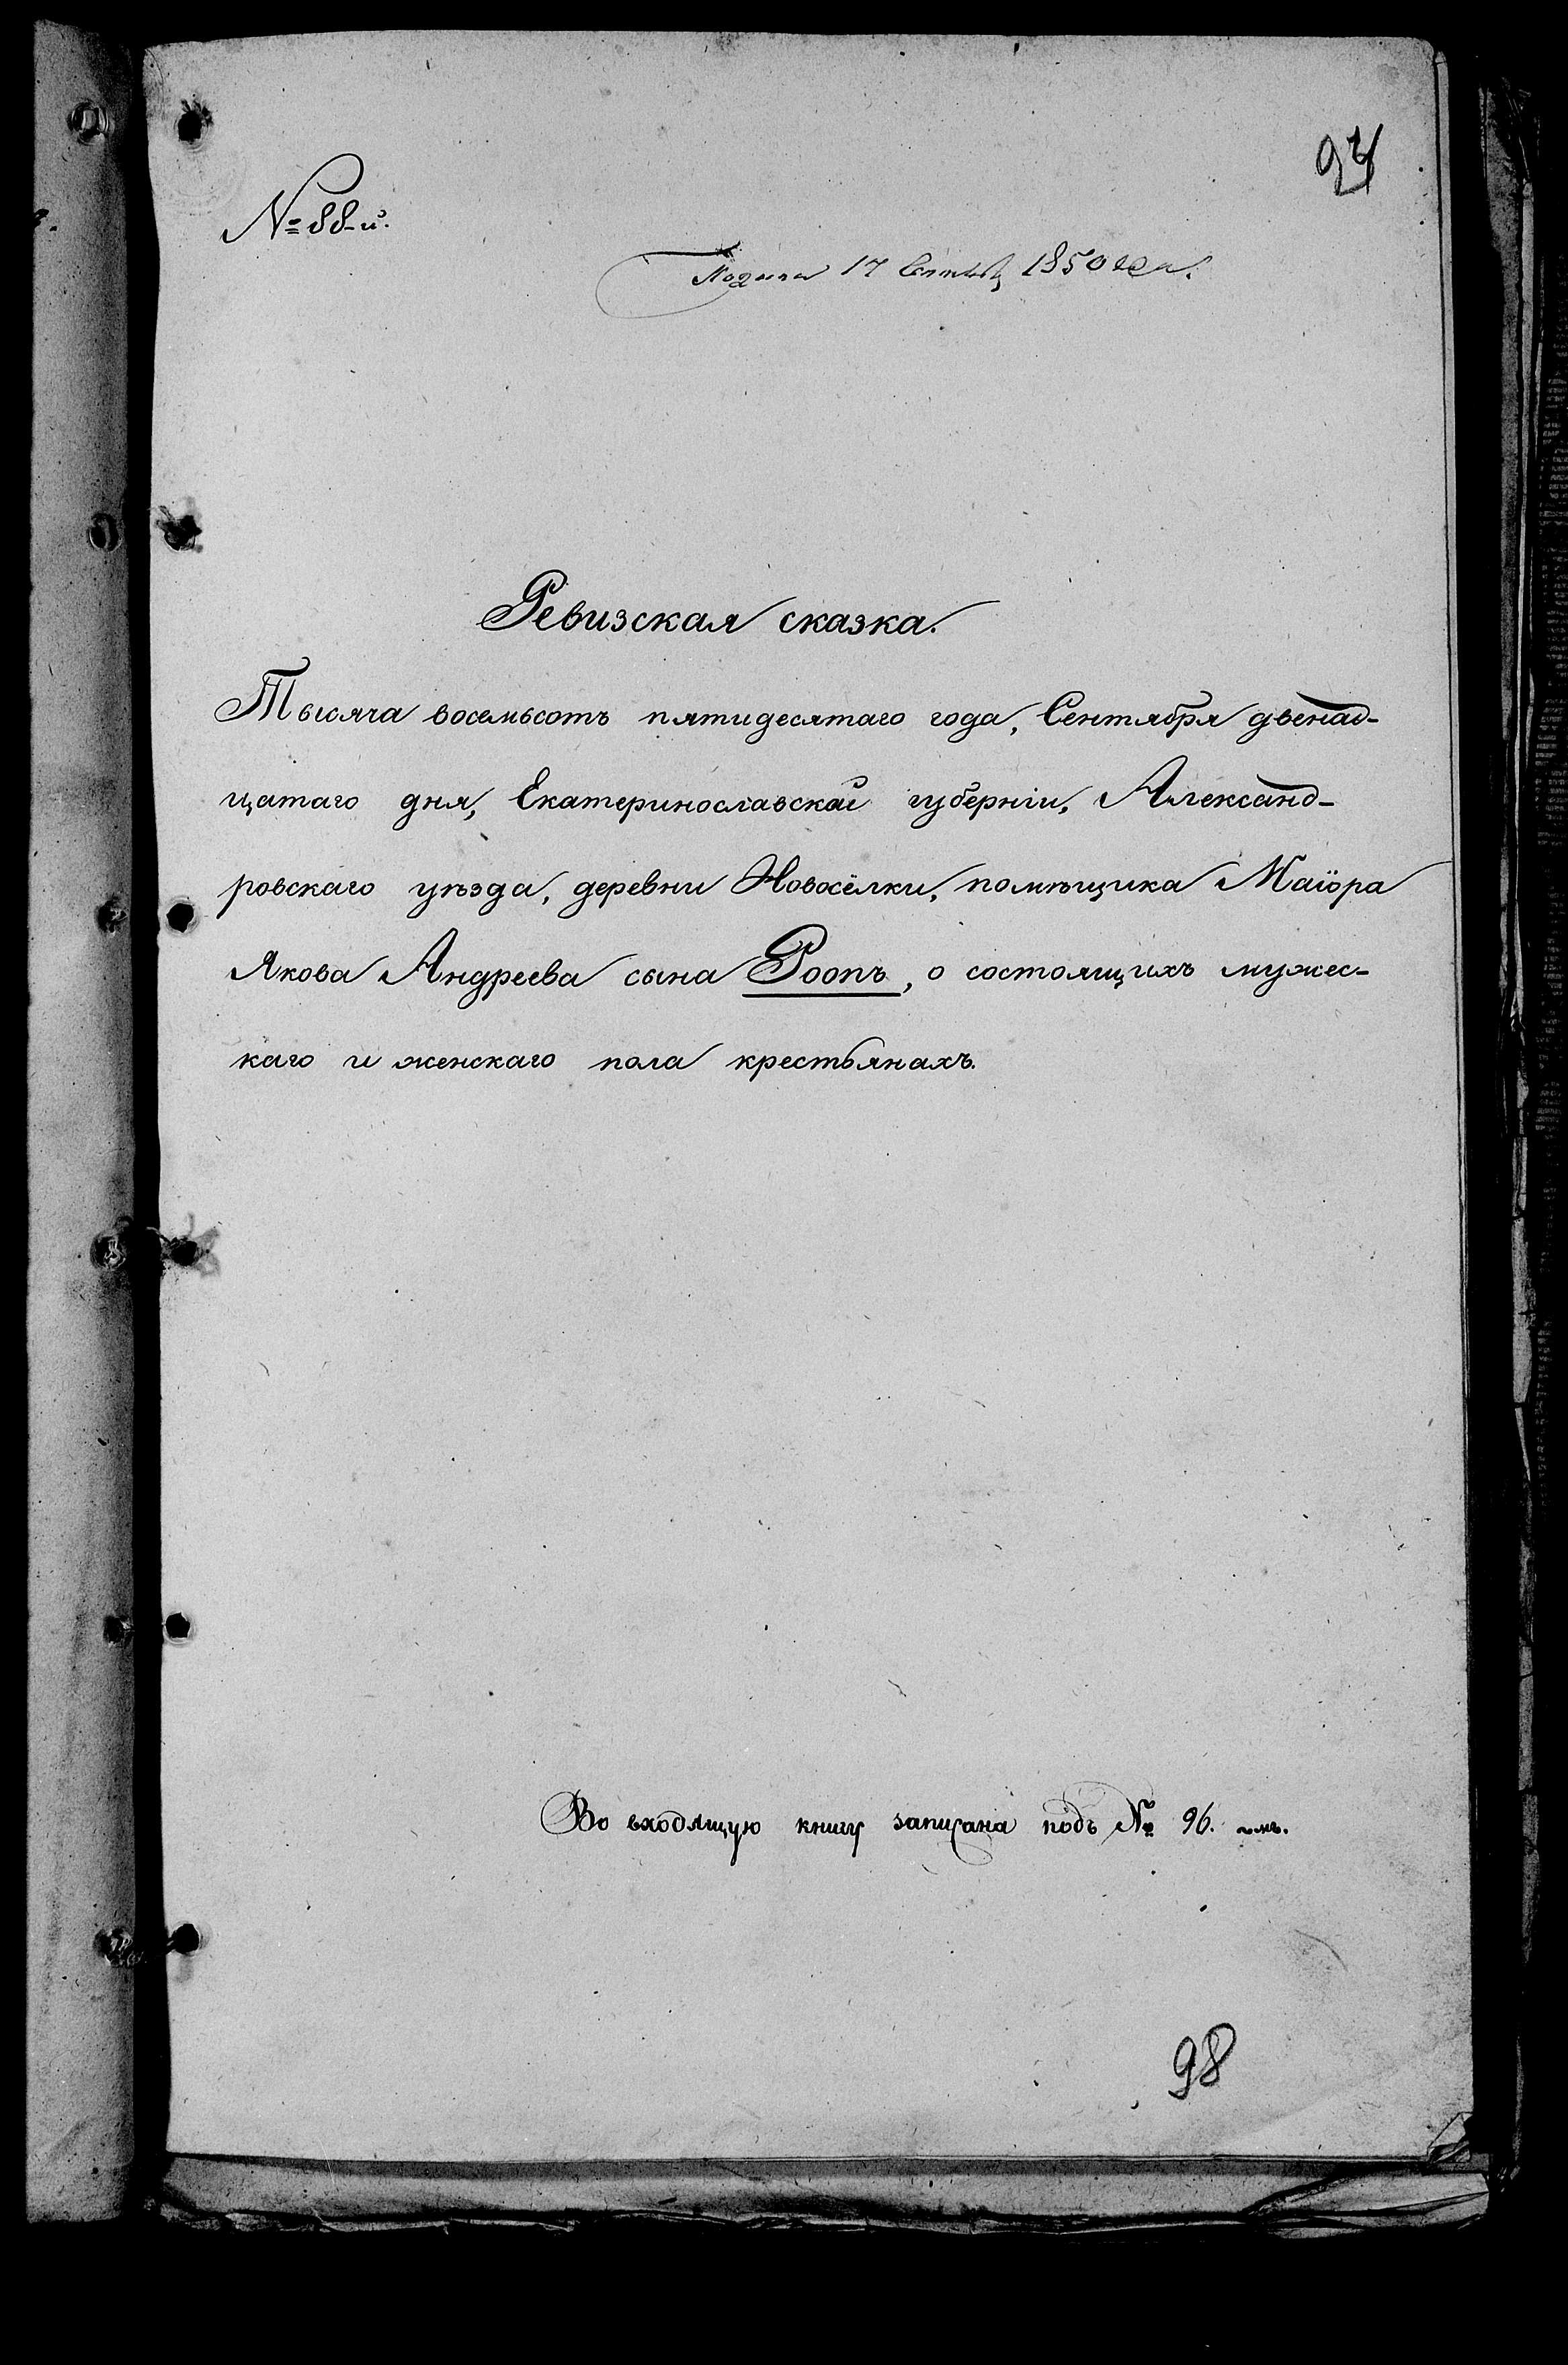 № 88-й.
Подана 17 Сентяб 1850 года.
Ревизская сказка.
Тысяча восемьсотъ пятидесятаго года, Сентября двенад-
цатаго дня, Екатеринославской губерніи, Александ-
ровскаго уѣзда, деревни Новосёлки, помѣщика Маіора
Якова Андреева сына Роопъ, о состоящихъ мужес-
каго и женскаго пола крестьянахъ.
Во входящую книгу записана подъ № 96.
98